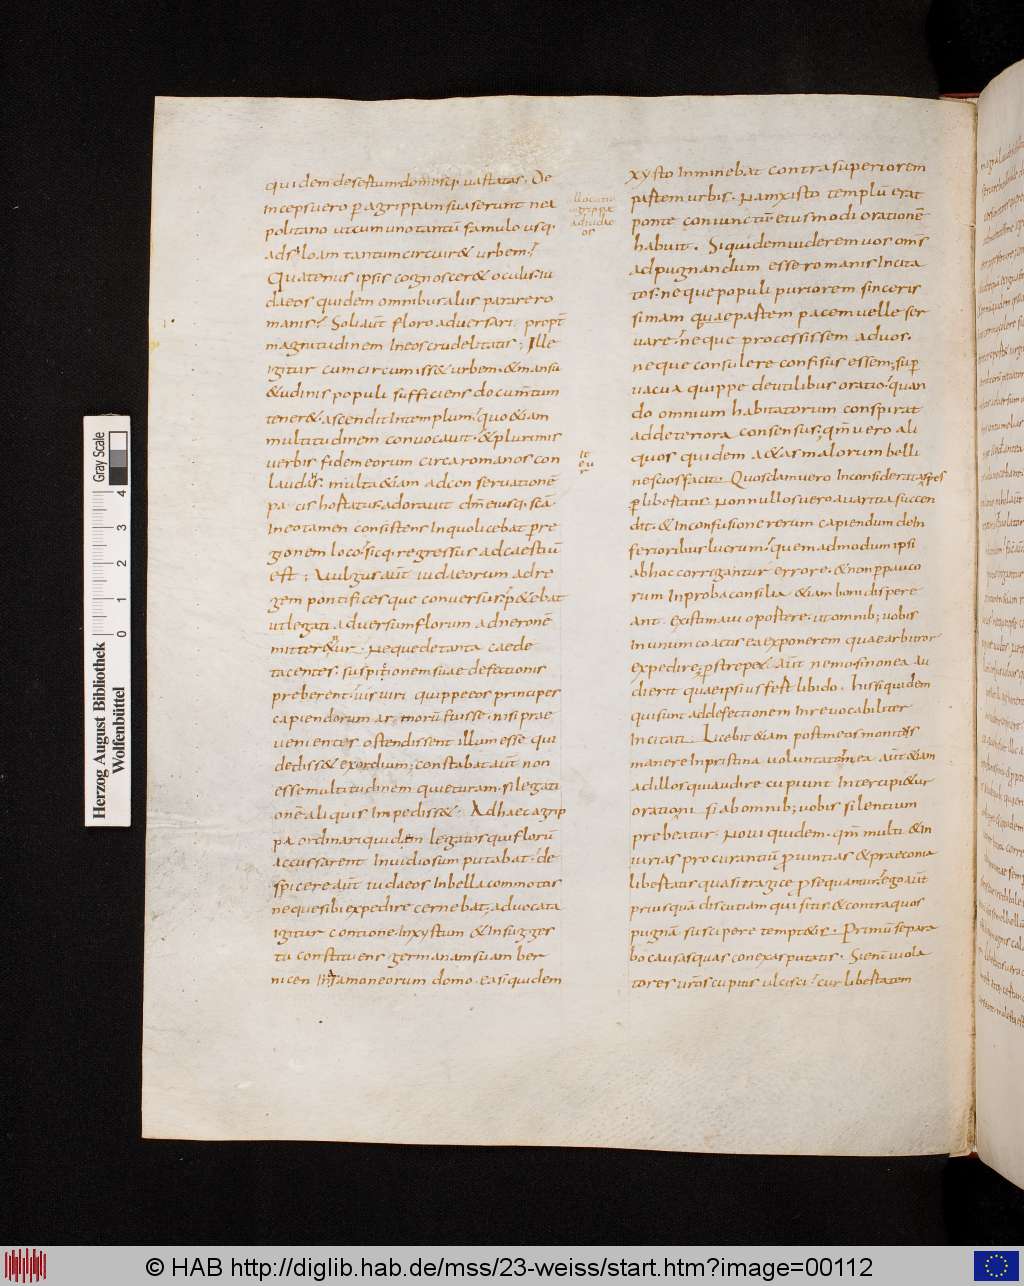 quidem desertum: domusq; uastatas. De
inceps uero p agrippam suaserunt nea
politano ut cum uno tantū famulo usq;
ad siloam tantum circuir& urbem.
Quatenus ipsis cognoscer& oculis. iu
daeos quidem omnibus aliis parare ro
manis. Soli aūt floro adversari. propt
magnitudinem in eos crudelitatis; Ille
igitur cum circumiss& urbem. &mansu
&udinis populi sufficiens documtum
tener& ascendit in templum. quo &iam
multitudinem convocavit. & plurimis
verbis fidem eorum circa romanos con
laudans. multa &iam ad conservationē
pacis hortatus. adoravit dm̄ eiusq; scā
in eo tamen consistens in quo licebat p re
gionem loco. sicq; regressus ad caestiū
est; Vulgus aūt iudaeorum ad re
gem pontificesque conversus. p&ebat
ut legati adversum florum ad neronē
mitterentur. Neque de tanta caede
tacentes. suspitionem suae defectionis
preberent. uisuiri quippe eos principes
capiendorum armorū fuisse. nisi prae
venientes ostendissent illum esse qui
dediss& exordium; constabat aūt non
esse multitudinem quieturam. si legati
onē aliquis impediss&. Ad haec agrip
pa ordinari quidem legatos qui florū
accussarent invidiosum putabat. de
spicere aūt iudaeos in bella commotos
neque sibi expedire cernebat; advocata
igitur contione in xystum & in sugges
tu constituens germanam suam ber
nicen in asamoneorum domo. ea siquidem
allocutio
agrippa
ad iudae
os
xysto inminebat contra superiorem
partem urbis. Nam xisto templū erat
ponte coniunctū. eiusmodi orationē
habuit. Siquidem viderem vos oms̄
ad pugnandum esse romanis incita
tos. neque populi puriorem sinceris
simam quae partem pacem velle ser
vare. neque processissem ad vos.
neque consulere confisus essem; sup
vacua quippe de utilibus oratio. quan
do omnium habitatorum conspirat
ad deteriora consensus; qm̄ vero ali
quos quidem a&as malorum belli
nescios facit. Quosdam vero inconsiderata spes
libertatis. Nonnullos vero avaritia succen
dit. & in confusione rerum capiendum de in
ferioribus lucrum. quemadmodum ipsi
ab hoc corrigantur errore. & non p pauco
rum inproba consilia &iam boni dispere
ant. existimavi oportere. ut omnib; vobis
in unum coactis ea exponerem quae arbitror
expedire; pstrepe& aūt nemo si non ea au
dierit quae ipsius fert libido. hi siquidem
qui sunt ad defectionem inrevocabiliter
incitati. Licebit &iam post meas monitiones
manere in pristina voluntate. mea aūt &iam
ad illos qui audire cupiunt intercipi&ur
oratio. ni si ab omnib; vobis silentium
prebeatur. Novi quidem. qm̄ multi &in
iurias procurantiū p vintias & praeconia
libertatis quasi tragice psequantur. ego aūt
prius quā discutiam qui sitis. & contra quos
pugnā suscipere tempt&is. Primū separa
bo causas quas conexas putatis. Si enī viola
tores vr̄os cupitis ulcisci. cur libertatem
Herzog August Bibliothek
Wolfenbüttel
0 1 2 3 4
Gray Scale
© HAB http://diglib.hab.de/mss/23-weiss/start.htm?image=00112